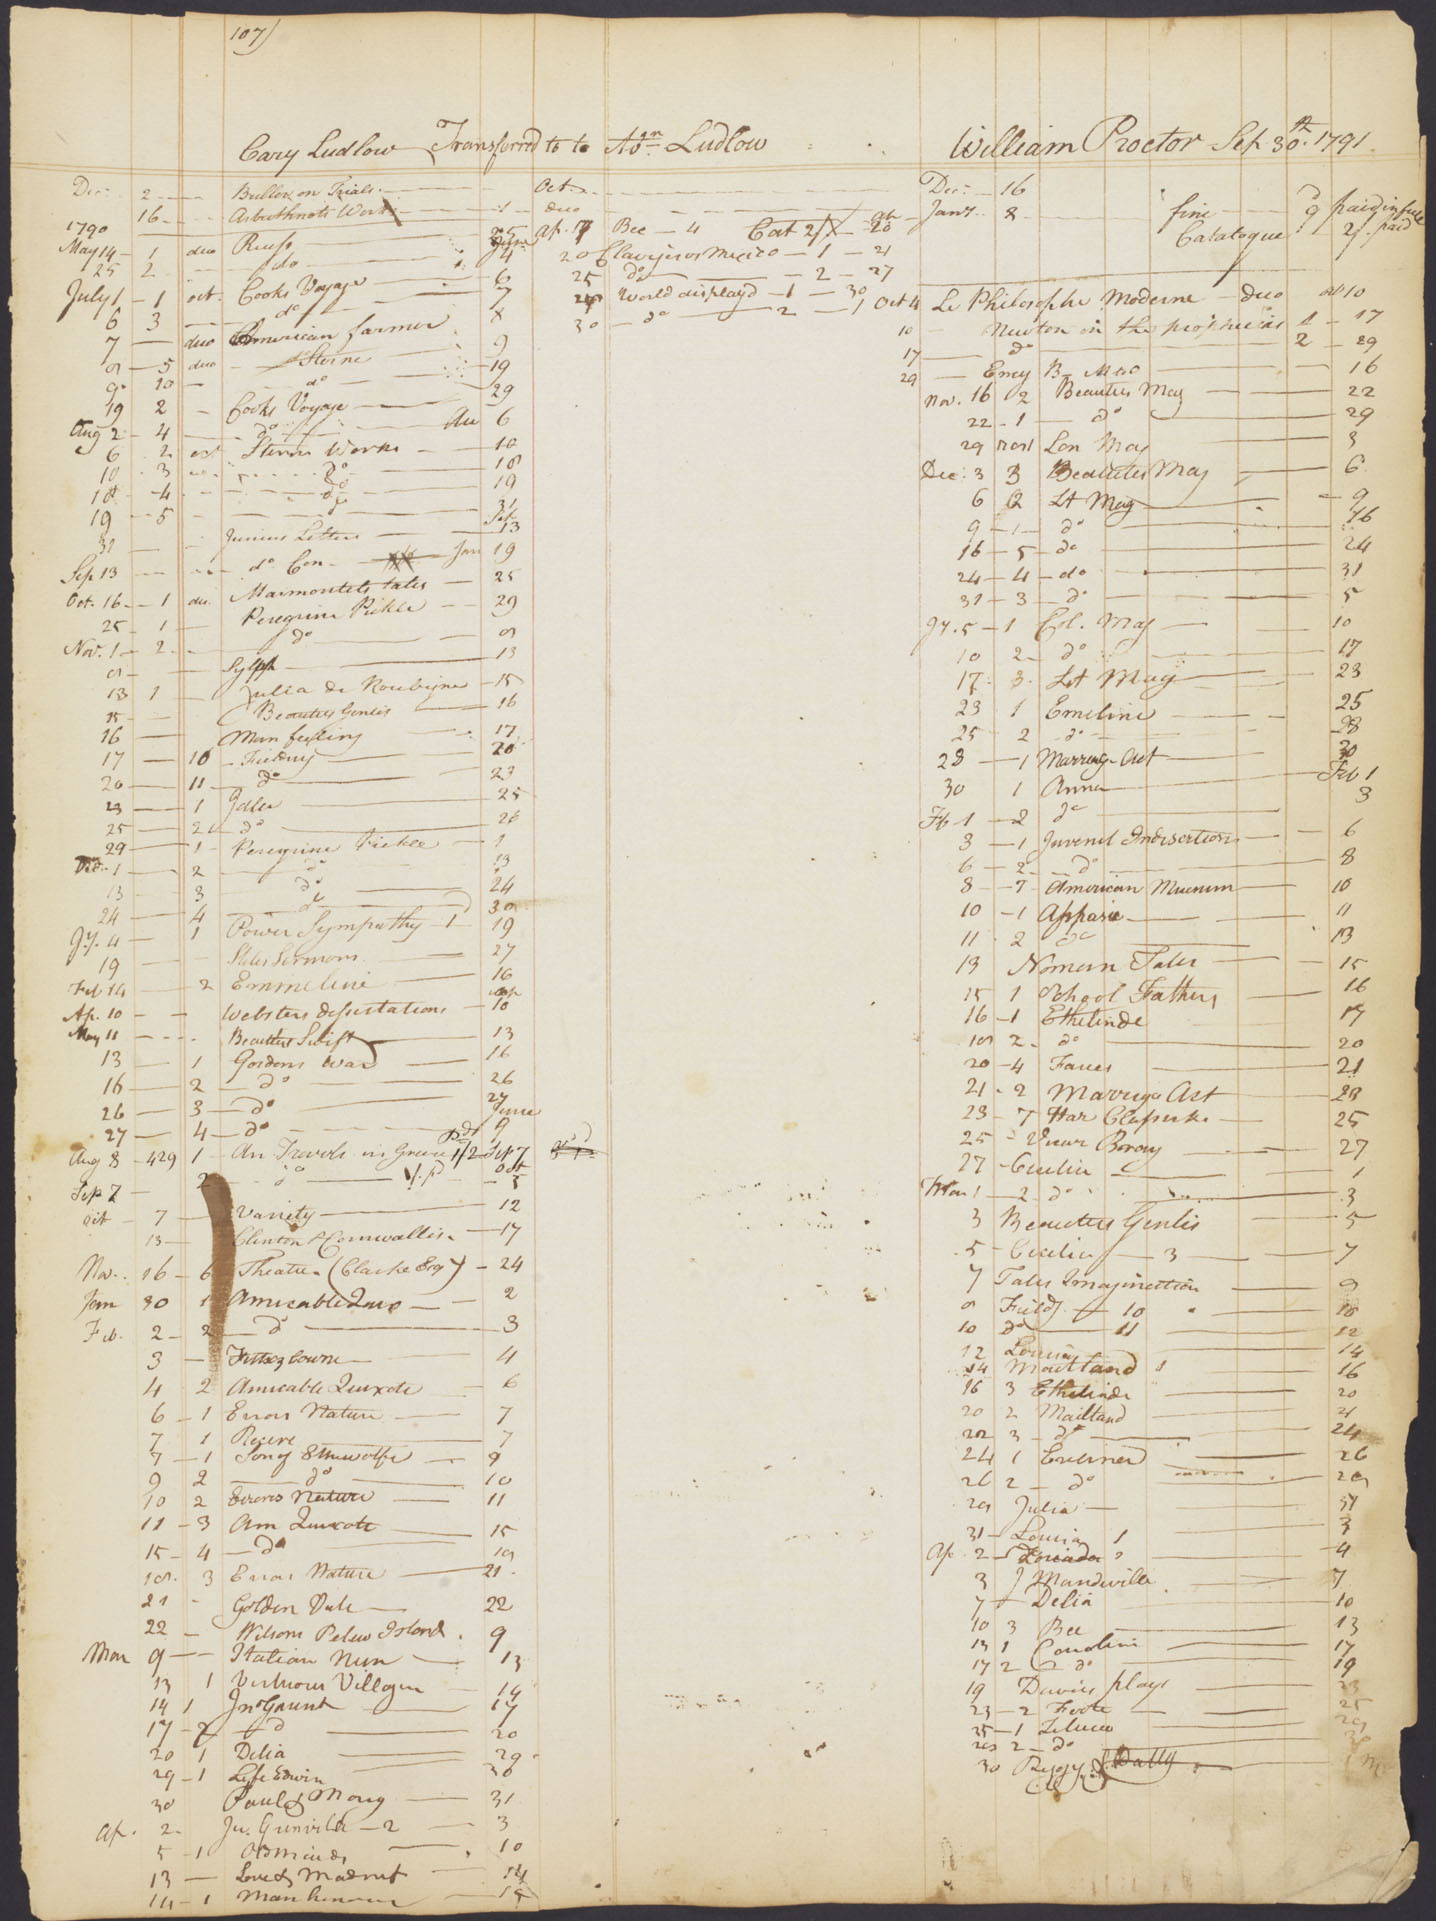 107)
Cary Ludlow Transferred to to Ludlow
Dec. 2 Bullow on Trials Oct.
16 Arbuthnots Works 1 duo
1790
May 14 1 duo 25 ap. 7 Bee 4 Cat 2/ 20
25 2 do 4 20 Clavijeros Mexico 1 21
July 1 1 oct. Cooks Voyage 6 25 do 2 27
6 3 do 7 World displayd 1 30
7 duo American farmer 8 30 do 2 1
8 5 duo Sterne 9
9 10 do 19
19 2 Cooks Voyage 29
Aug 2 4 do Au 6
6 2 oct Sterns Works 10
10 3 do 18
18 4 do 19
19 5 do 31
31 Junius Letters Sep 13
Sep 13 do Con. Jan 19
Oct. 16 1 du. Marmontels tales 25
25 1 Peregrine Pickle 29
Nov. 1 2 do 8
8 Sylph 13
13 1 Julia de Roubigne 15
15 Beauties Genlis 16
16 Man feeling 17
17 10 Fielding 20
20 11 do 23
23 1 Idler 25
25 2 do 26
29 1 Peregrine Pickle 1
Dec. 1 2 do 13
13 3 do 24
24 4 do 30
Jy. 4 1 Power Sympathy 1 19
19 Stiles Sermons 27
Feb 14 2 Emmeline 16
Ap. 10 Websters desertations 10
May 11 Beauties Swift 13
13 1 Gordons War 16
16 2 do 26
26 3 do 27
June
27 4 do 9
Aug 8 429 1 An Travels in Greece 1/2 Sep 7
Oct
Sep 7 2 do 5
Oct 7 Variety 12
13 Clinton & Cornwallis 17
Nov. 16 6 Theatre (Clarke Esqr) 24
Jan 30 1 Amicable Quixo 2
Feb. 2 2 do 3
3 4
4 2 Amicable Quixote 6
6 1 Errors Nature 7
7 1 Recess 7
7 1 Son of Ethelwolfe 9
9 2 do 10
10 2 Errors Nature 11
11 3 Am Quixote 15
15 4 do 18
18. 3 Errors Nature 21
21 Golden Vale 22
22 Wilsons Pelew Island 9
Mar 9 Italian Nun 13
13 1 Virtuous Villager 14
14 1 Jno Gaunt 17
17 2 do 20
20 1 Delia 29
29 1 Life Edwin 30
30 Paul & Mary 31
Ap. 2 2 3
5 1 10
13 Love & Madness 14
14 1
William Proctor Sep. 30th 1791
Dec. 16
Jany. 8 fine 9d paid in full
Catalogue 2/. paid
Oct 4 Le Philosophe Moderne duo 10
10 Newton on the prophecies 1 17
17 do 2 29
29 Ency B. 16
Nov. 16 2 Beauties Mag 22
22 1 do 29
29 Lon Mag 3
Dec. 3 3 Beauties Mag 6
6 2 Lt Mag 9
9 1 do 16
16 5 do 24
24 4 do 31
31 3 do 5
Jy. 5 1 Col. Mag 10
10 2 do 17
17 3 Lt Mag 23
23 1 Emeline 25
25 2 do 28
28 1 Marriage Act 30
30 1 Anna Feb 1
Fb 1 2 do 3
3 1 Juvenil Indiscretions 6
6 2 do 8
8 7 American Museum 10
10 1 Aspasia 11
11 2 do 13
13 Norman Tales 15
15 1 School Fathers 16
16 1 Ethelinde 18
18 2 do 20
20 4 Farces 21
21 2 Marriage Act 23
23 7 Har 25
25 Vicar Bray 27
27 Cecilia 1
Mar 1 2 do 3
3 Beauties Genlis 5
5 Cecilia 3 7
7 Tales Imagination 8
8 Field. 10 10
10 do 11 12
12 Louisa 14
14 Maitland 1 16
16 3 Ethelinde 20
20 2 Maitland 21
22 3 do 24
24 1 Evelina 26
26 2 do 28
28 Julia 31
31 Louisa 1 3
Ap. 2 2 4
3 J Mandeville 7
7 Delia 10
10 3 Bee 13
13 1 Caroline 17
17 2 do 19
19 Davies plays 23
23 2 Foote 25
25 1 Zeluco 28
28 2 do 30
30 Peggy & Patty